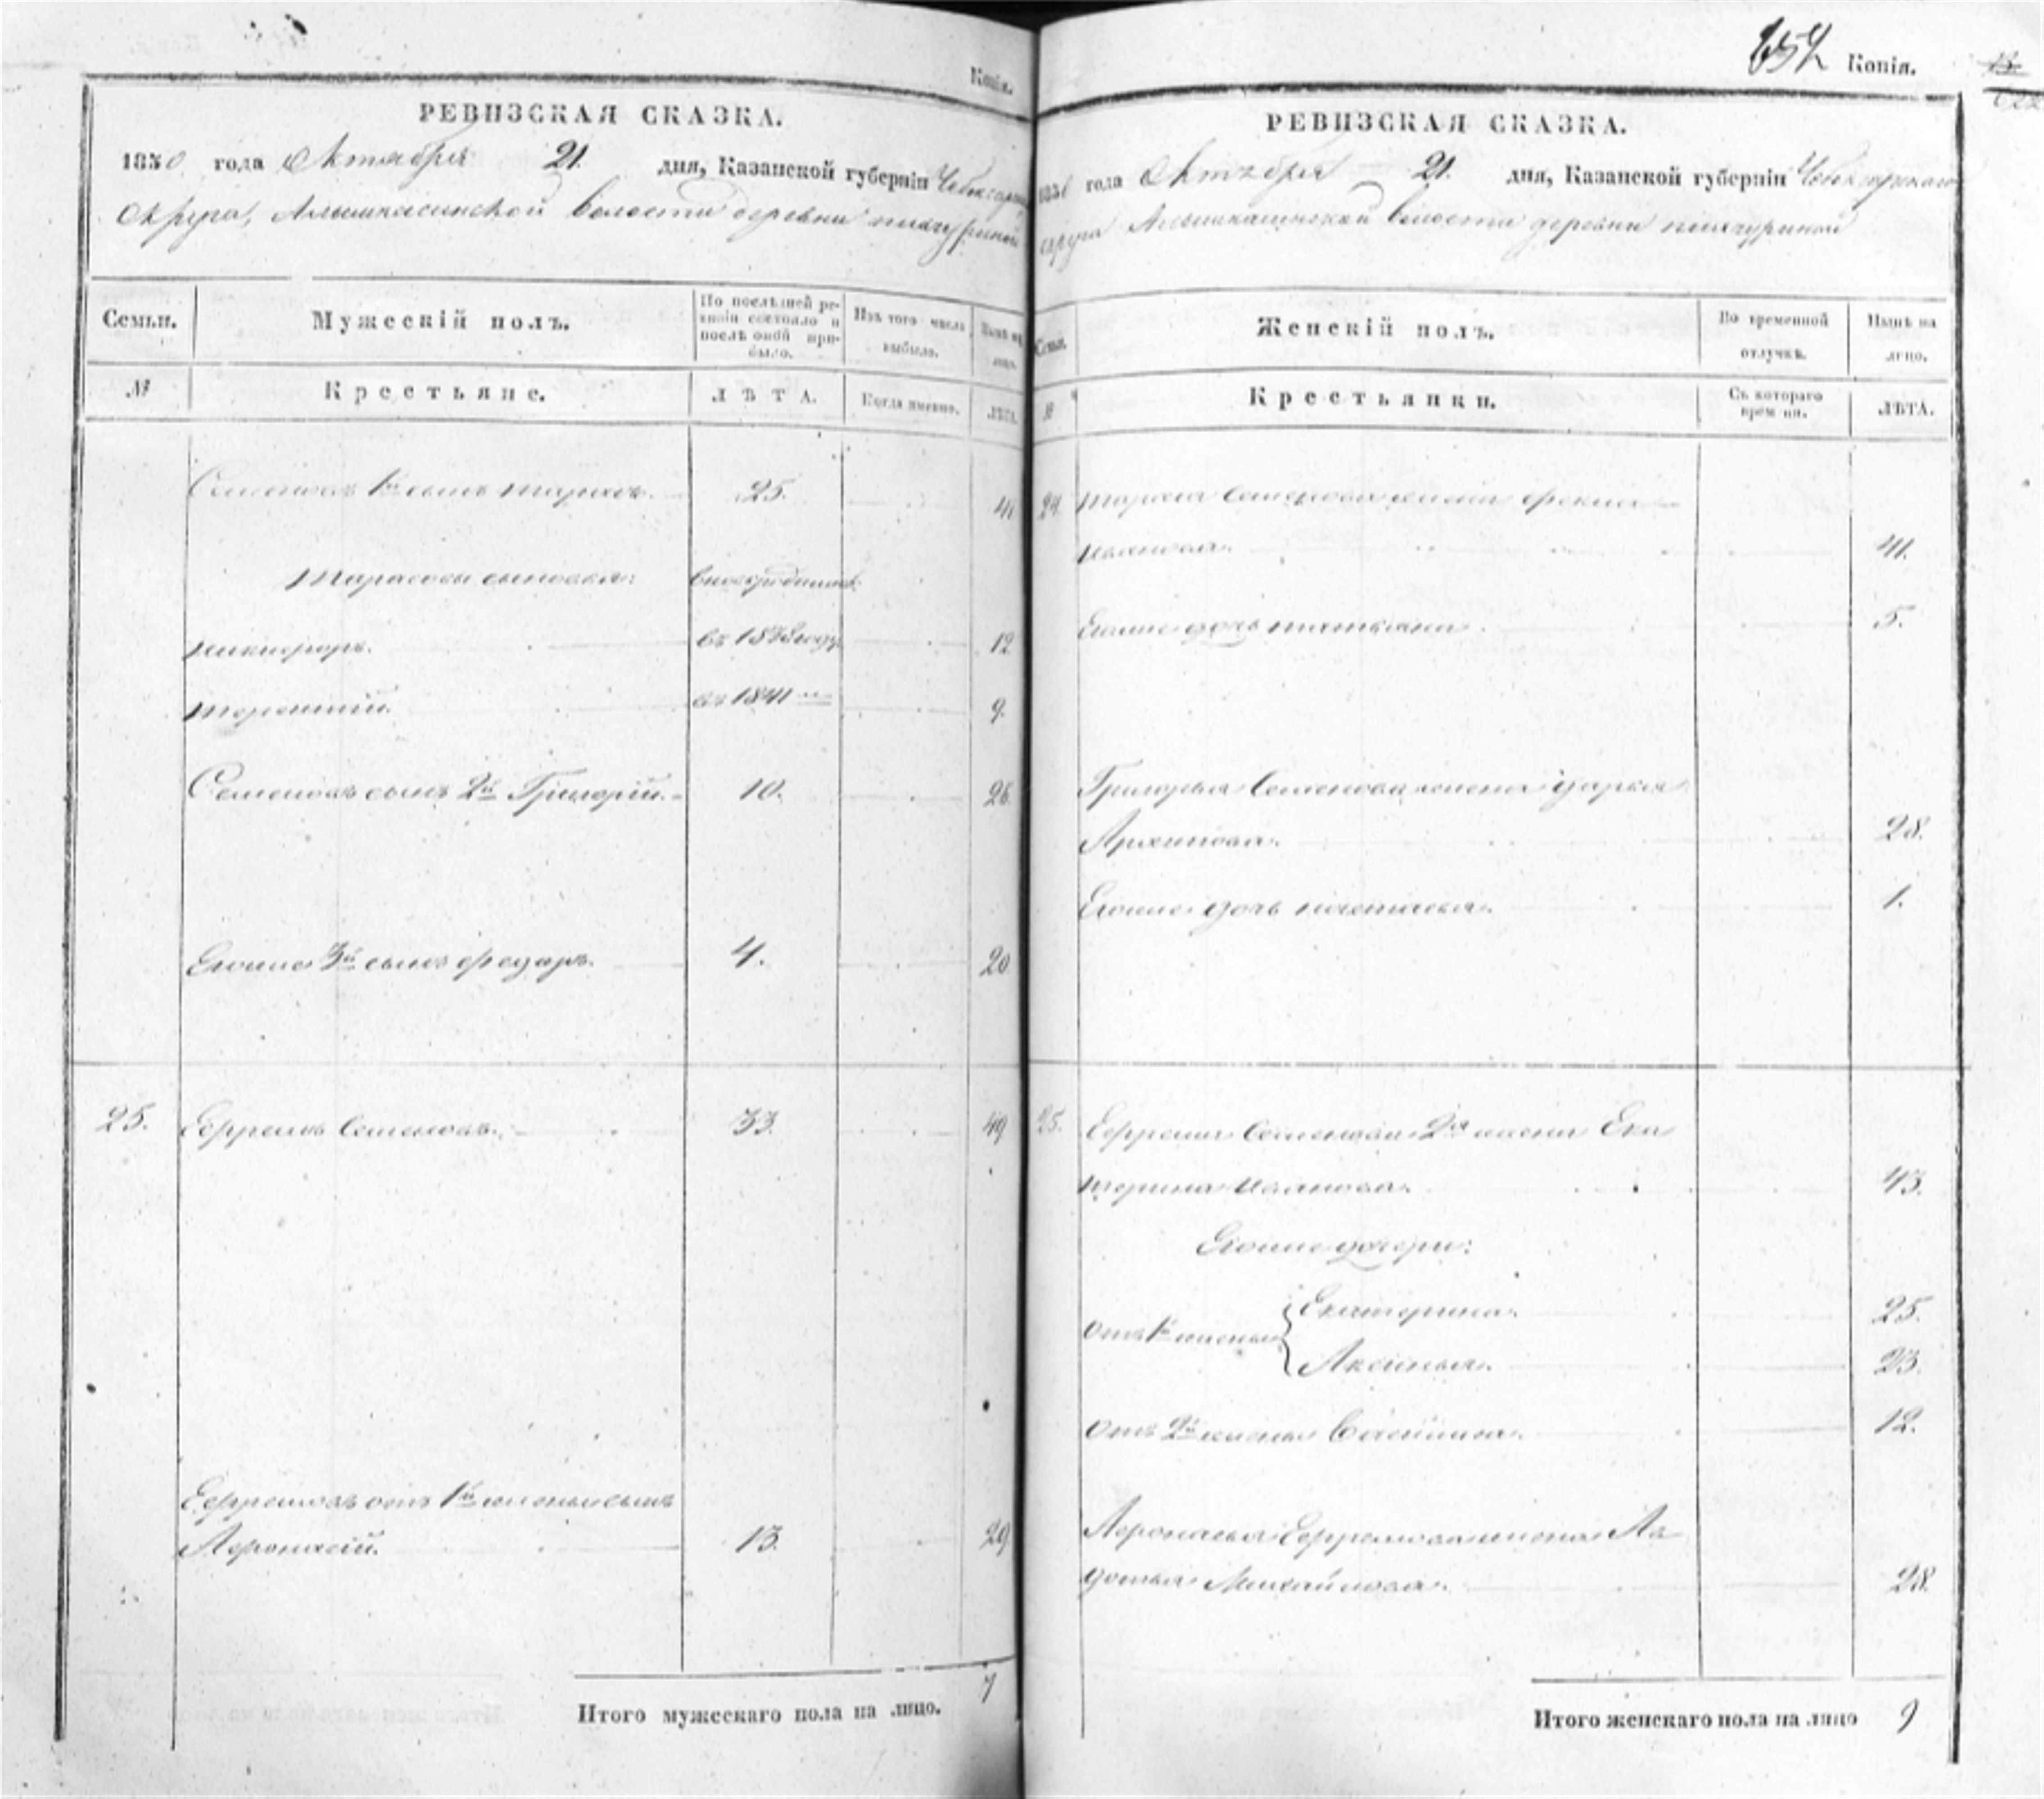 Копія.
РЕВИЗСКАЯ СКАЗКА.
1850 года Октября 21. дня, Казанской губерніи Чебоксарскаго
округа, Алымкасинской волости деревни
Семьи.
Мужескій полъ.
По послѣдней ревизіи состояло и послѣ оной прибыло.
Изъ того числа выбыло.
Нынѣ на лицо.
№
Крестьяне.
ЛѢТА.
Когда именно.
ЛѢТА.
Семеновъ 1й сынъ Тарасъ. 25. 41
Тарасовы сыновья:
Никифоръ. въ 1838 году 12
Терентій. въ 1841 — 9.
Семеновъ сынъ 2й Григорій. 10. 26
Егоже 3й сынъ Федоръ. 4. 20
25. Ефремъ Семеновъ. 33. 49
Ефремовъ отъ 1й жены сынъ
Афонасій. 13. 29
Итого мужескаго пола на лицо. 7
657 Копія.
РЕВИЗСКАЯ СКАЗКА.
1850 года Октября 21. дня, Казанской губерніи Чебоксарскаго
округа Алымкасинской волости деревни
Семьи.
Женскій полъ.
Во временной отлучкѣ.
Нынѣ на лицо.
№
Крестьянки.
Съ котораго времяни.
ЛѢТА.
24. Тараса Семенова жена Фекла
Иванова. 41.
Егоже дочь Татьяна. 5.
Григорья Семенова жена Дарья
Архипова. 28.
Егоже дочь Настасья. 1.
25. Ефрема Семенова 2я жена Ека
терина Иванова. 43.
Егоже дочери:
отъ 1й жены
Екатерина. 25.
Аксинья. 23.
отъ 2й жены 12.
Афонасья Ефремова жена Ав
дотья Михайлова. 28.
Итого женскаго пола на лицо 9